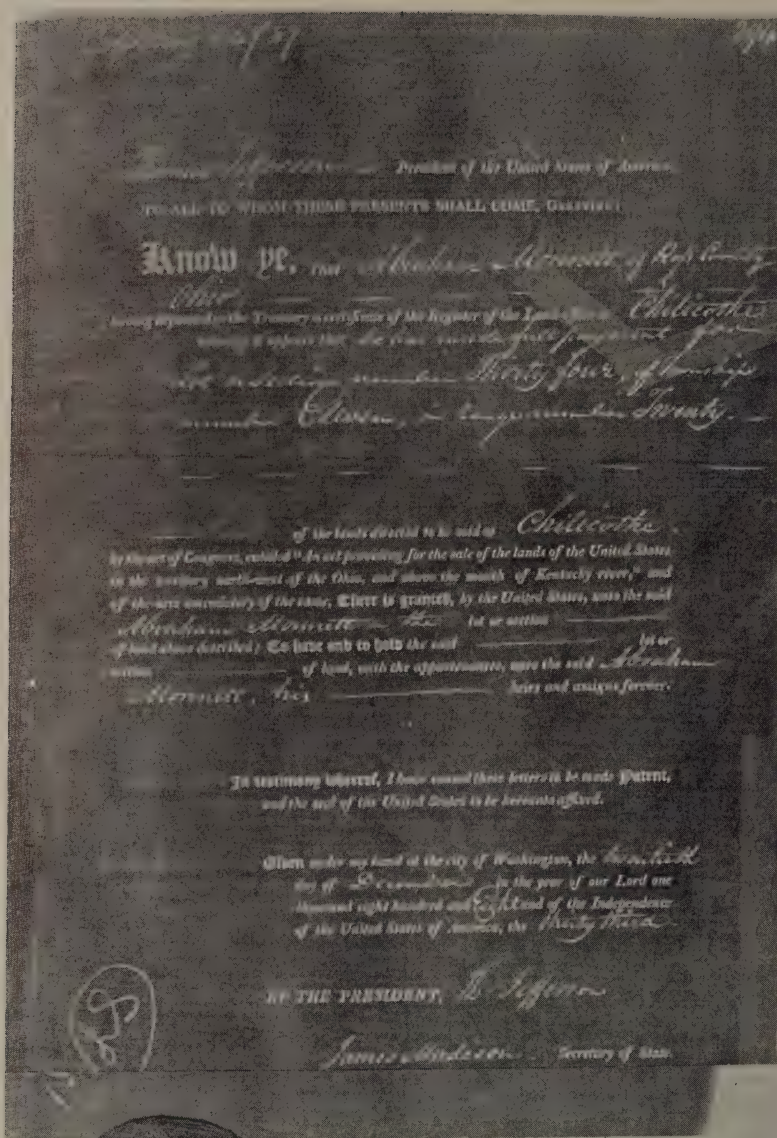 Jefferson President of the United States of America.
TO ALL TO WHOM THESE PRESENTS SHALL COME, GREETING:
Know ye, That Abraham Monnett of Ross County
Ohio
having deposited in the Treasury a certificate of the Register of the Land Office Chilicothe
whereby it appears that he has made full payment for
Lot or Section number Thirty four, of Township
number Eleven, in Range number Twenty.
of the lands directed to be sold at Chilicothe
by the act of Congress, entitled "An act providing for the sale of the lands of the United States
in the territory northwest of the Ohio, and above the mouth of Kentucky river," and
of the acts amendatory of the same, There is granted, by the United States, unto the said
Abraham Monnett the lot or section
of land above described; To have and to hold the said lot or
section of land, with the appurtenances, unto the said Abraham
Monnett, his heirs and assigns forever.
In testimony whereof, I have caused these letters to be made Patent,
and the seal of the United States to be hereunto affixed.
Given under my hand at the city of Washington, the twentieth
day of December in the year of our Lord one
thousand eight hundred and Eight and of the Independence
of the United States of America, the thirty third.
BY THE PRESIDENT, Th Jefferson
James Madison Secretary of State.